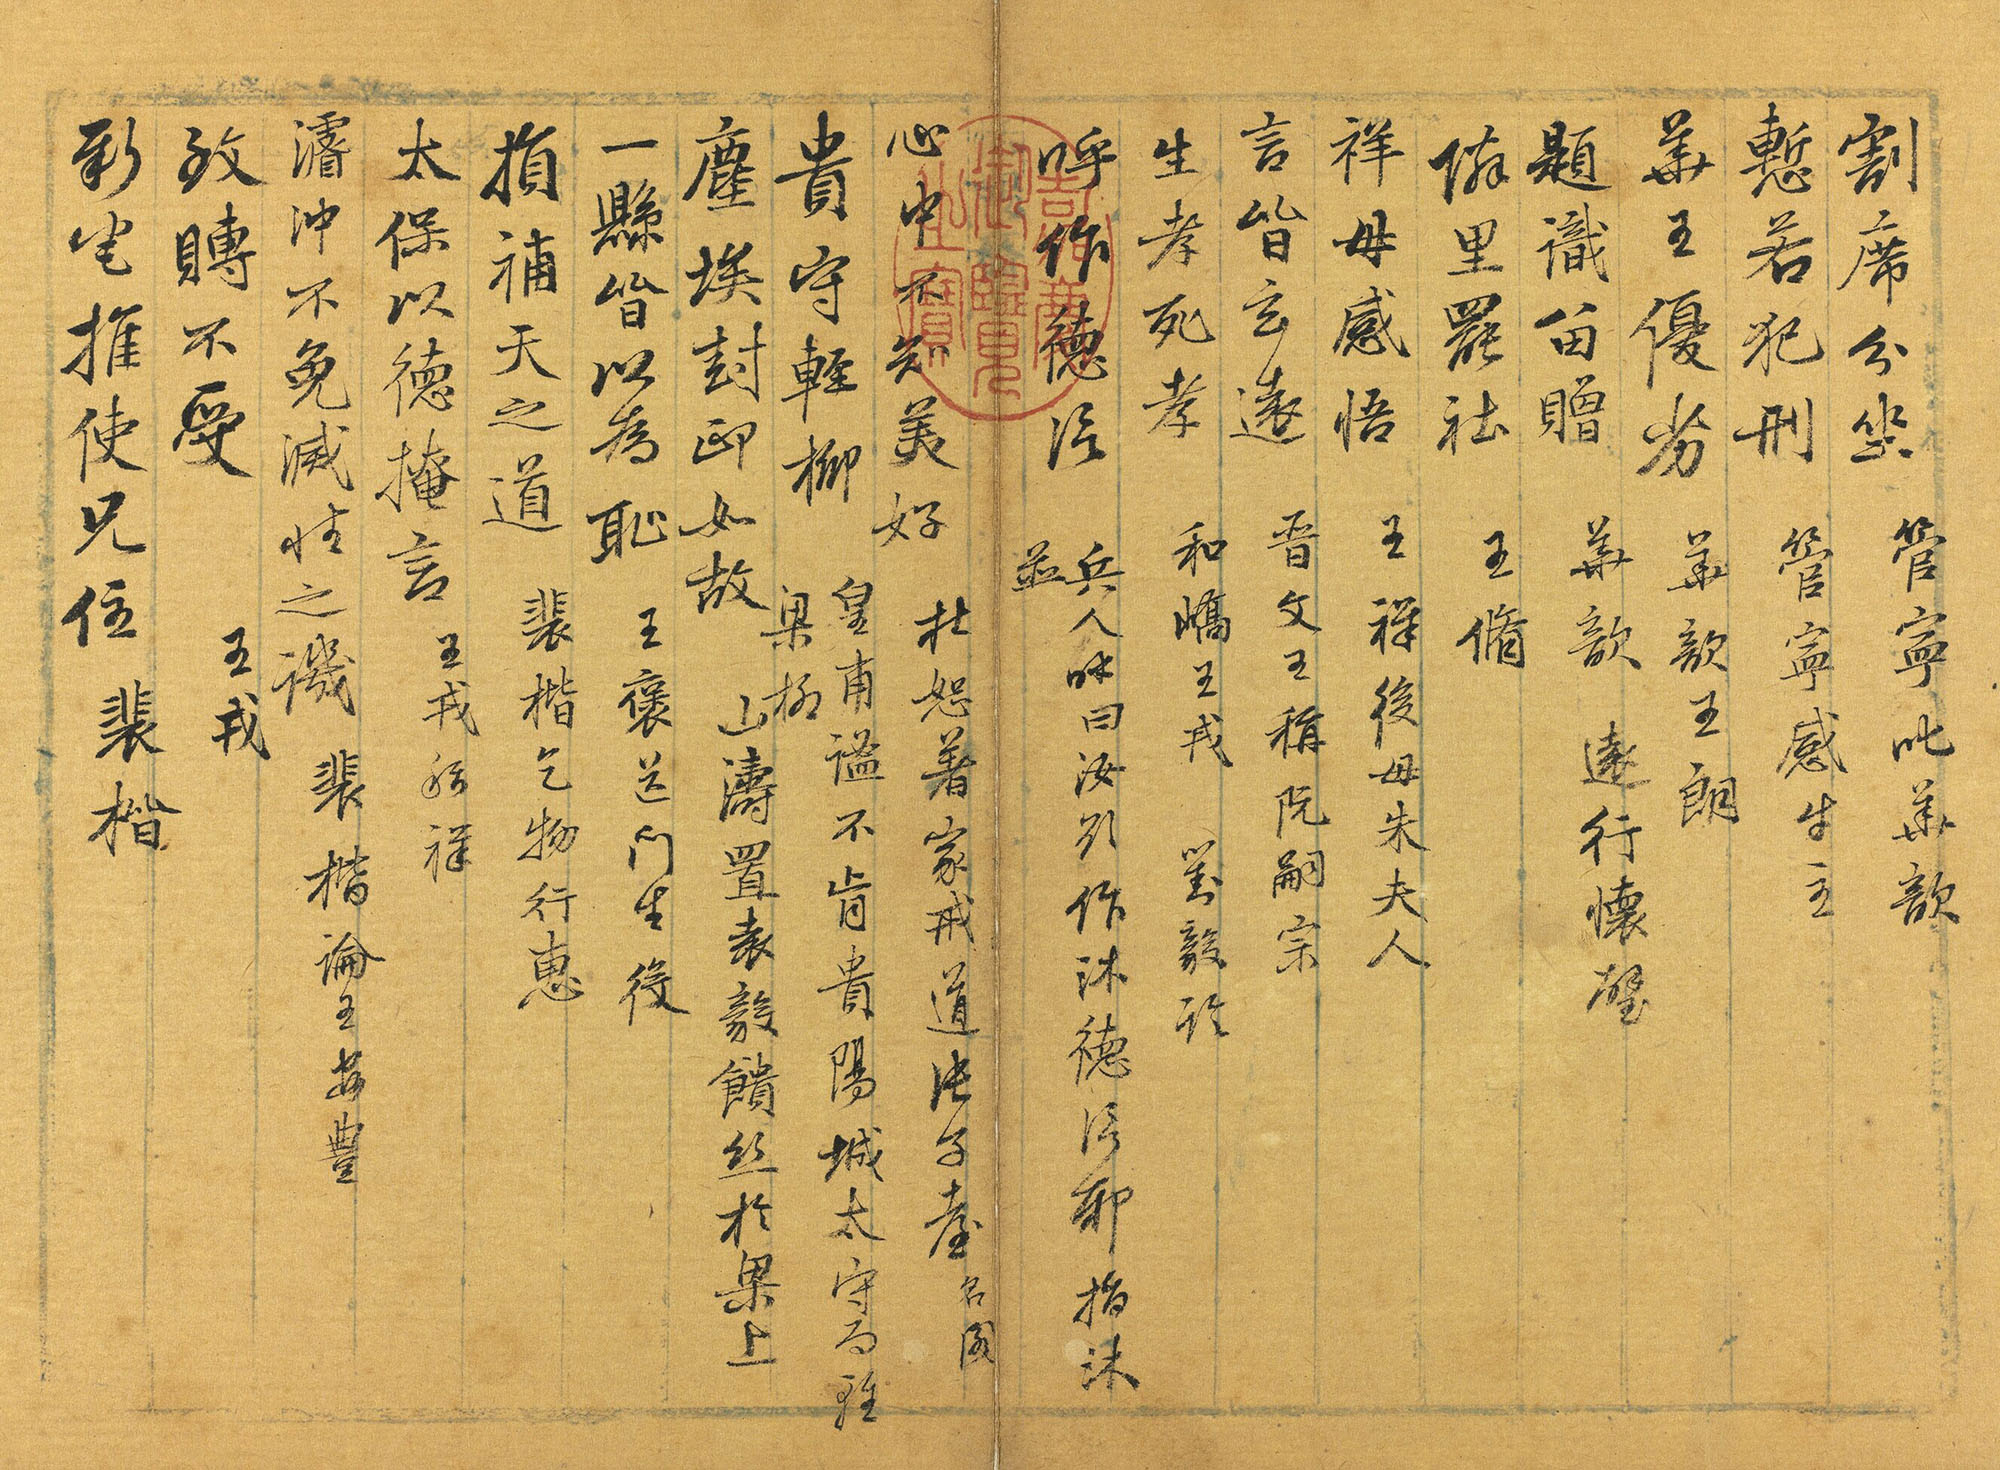 割席分坐 管寧比華歆
慙若犯刑 管寧感生主
華王優劣 華歆王朗
題識留贈 華歆 遠行懷璧
隣里罷社 王脩
祥母感悟 王祥後母朱夫人
言皆玄遠 晋文王稱阮嗣宗
生孝死孝 和嶠王戎 劉毅論
呼作德 兵人 曰汝 作沐德 耶 指沐
並
心中不知美好 杜恕著家戒道張子臺 名閣
貴守輕柳 皇甫謐不肯貴陽城太守而輕
梁柳
塵埃封印如故 山濤置袁毅饋絲於梁上
一縣皆以為恥 王裒送門生役
損補天之道 裴楷乞物行惠
太保以德掩言 王戎 祥
濬沖不免滅性之譏 裴楷論王安豐
致賻不受 王戎
形宅推使兄住 裴楷